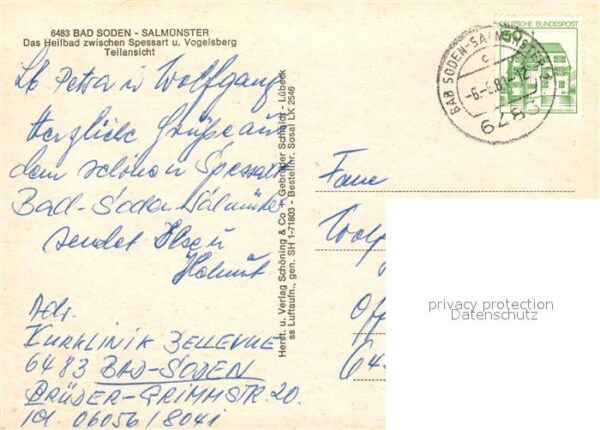 6483 BAD SODEN - SALMÜNSTER
Das Heilbad zwischen Spessart u. Vogelsberg
Teilansicht
Lb Petra u Wolfgang
Herzliche Grüße aus
dem schönen Spessart
Bad-Soden Salmünster
sendet Ilse u
Helmut
Adr.
KURKLINIK BELLEVUE
6483 BAD-SODEN
BRÜDER-GRIMMSTR. 20
Tel. 06056/8041
Herst. u. Verlag Schöning & Co + Gebrüder Schmidt - Lübeck
ss Luftaufn., gen. SH 1-71803 - Bestellnr. Sosal LK 2546
DEUTSCHE BUNDESPOST
50
BAD SODEN-SALMÜNSTER
c
6483
Wolf
Off
64
privacy protection
Datenschutz